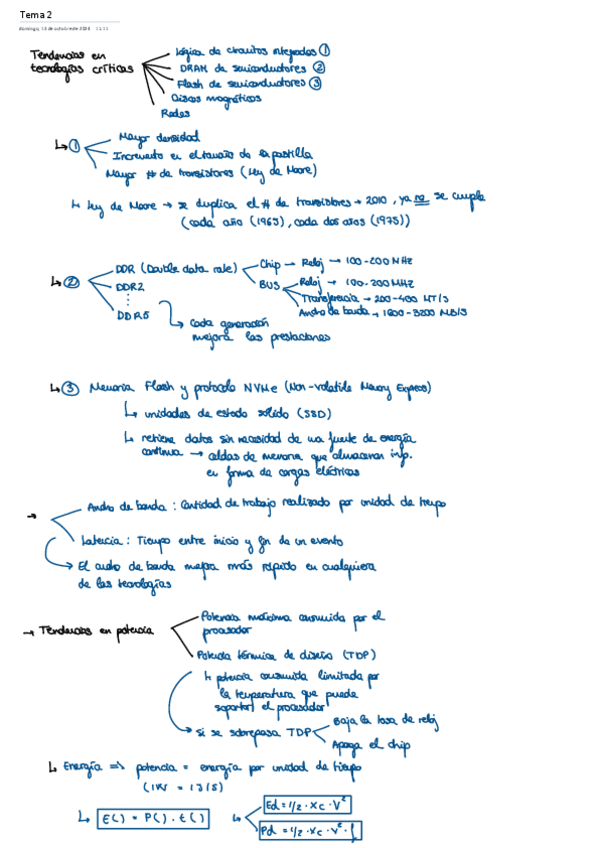 Tema 2
domingo, 13 de octubre de 2024 11:11
Tendencias en
tecnologías críticas
Lógica de circuitos integrados ①
DRAM de semiconductores ②
Flash de semiconductores ③
Discos magnéticos
Redes
↳ ①
Mayor densidad
Incremento en el tamaño de la pastilla
Mayor # de transistores (Ley de Moore)
↳ Ley de Moore → se duplica el # de transistores → 2010, ya no se cumple
(cada año (1965), cada dos años (1975))
↳ ②
DDR (Double data rate)
Chip → Reloj → 100-200 MHz
BUS
Reloj → 100-200 MHz
Transferencia → 200-400 MT/s
Ancho de banda → 1600-3200 MB/s
DDR2
⋮
DDR5
↳ Cada generación
mejora las prestaciones
↳ ③ Memoria Flash y protocolo NVMe (Non-volatile Memory Express)
↳ unidades de estado sólido (SSD)
↳ retiene datos sin necesidad de una fuente de energía
continua → celdas de memoria que almacenan inf.
en forma de cargas eléctricas
→
Ancho de banda: Cantidad de trabajo realizado por unidad de tiempo
Latencia: Tiempo entre inicio y fin de un evento
→ El ancho de banda mejora más rápido en cualquiera
de las tecnologías
→ Tendencias en potencia
Potencia máxima consumida por el
procesador
Potencia térmica de diseño (TDP)
↳ potencia consumida limitada por
la temperatura que puede
soportar el procesador
→ Si se sobrepasa TDP
Baja la tasa de reloj
Apaga el chip
↳ Energía => potencia = energía por unidad de tiempo
(1W = 1J/s)
↳ E() = P() · t()
↳ Ed = 1/2 · xc · V²
Pd = 1/2 · xc · V² · f